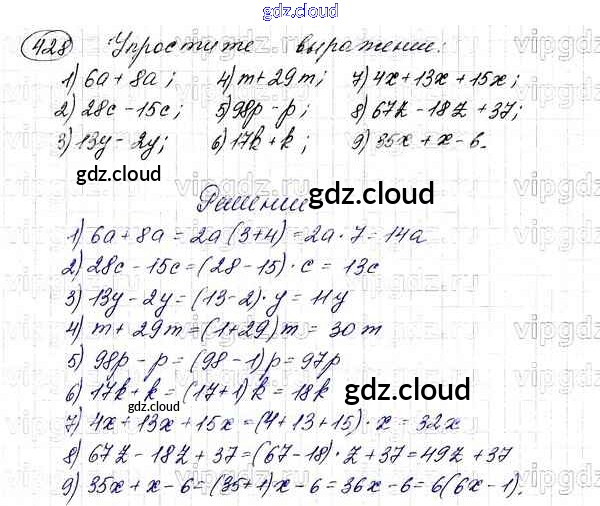 gdz.cloud
428 Упростите выражение:
1) 6a + 8a; 4) m + 29m; 7) 4x + 13x + 15x;
2) 28c - 15c; 5) 98p - p; 8) 67z - 18z + 37;
3) 13y - 2y; 6) 17k + k; 9) 35x + x - 6.
gdz.cloud gdz.cloud
Решение
1) 6a + 8a = 2a (3+4) = 2a · 7 = 14a
2) 28c - 15c = (28 - 15) · c = 13c
3) 13y - 2y = (13-2) · y = 11y
4) m + 29m = (1+29)m = 30m
5) 98p - p = (98 - 1)p = 97p
6) 17k + k = (17+1)k = 18k
gdz.cloud
7) 4x + 13x + 15x = (4+13+15) · x = 32x
8) 67z - 18z + 37 = (67-18) · z + 37 = 49z + 37
9) 35x + x - 6 = (35+1)x - 6 = 36x - 6 = 6(6x - 1).
gdz.cloud gdz.cloud